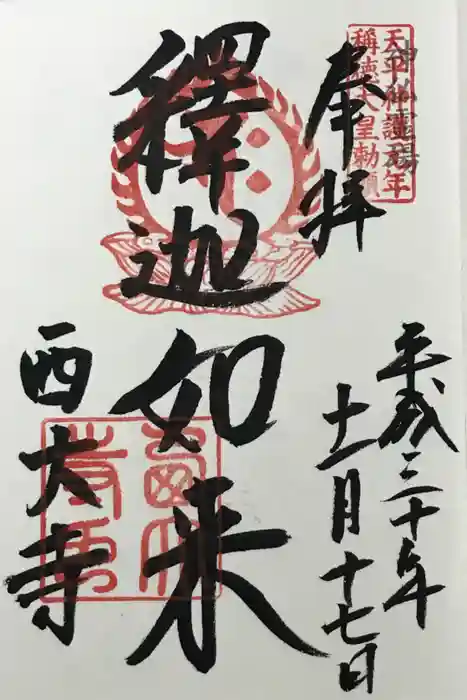 奉拝
天平神護元年
稱德天皇勅願
平成三十年
十一月十七日
釋迦如来
西大寺